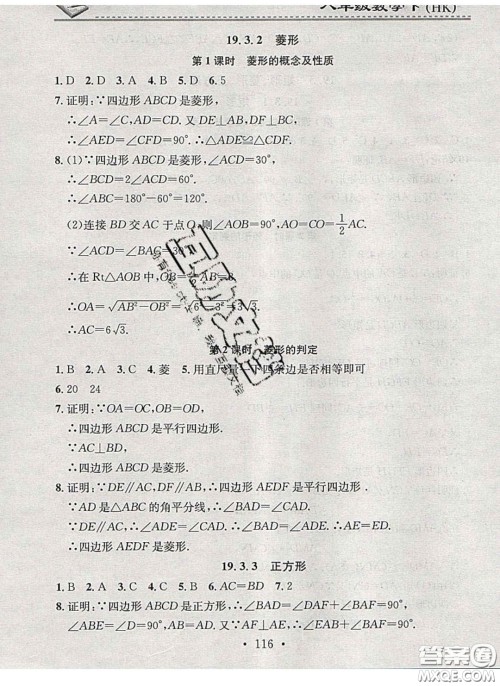 八年级数学下(HK)
19.3.2 菱形
第1课时 菱形的概念及性质
1. D 2. A 3. A 4. B 5. D 6. 5
7. 证明:∵四边形ABCD是菱形,
∴∠A=∠C,AD=CD.又DE⊥AB,DF⊥BC,
∴∠AED=∠CFD=90°.∴△ADE≌△CDF.
8. (1)∵四边形ABCD是菱形,∠ACD=30°,
∴∠BCD=2∠ACD=60°.
∴∠ABC=180°-60°=120°.
(2)连接BD交AC于点O,则∠AOB=90°,AO=CO=1/2 AC.
∵∠ACD=∠BAC=30°
∴在Rt△AOB中,
∴OA=√AB²-OB²=√6²-3²=3√3.
∴AC=6√3.
第2课时 菱形的判定
1. B 2. A 3. C 4. 菱 5. 用直尺量一下四条边是否相等即可
6. 20 24
7. 证明:∵OA=OC,OB=OD,
∴四边形ABCD是平行四边形.
∵AC⊥BD,
∴四边形ABCD是菱形.
8. 证明:∵DE∥AC,DF∥AB,∴四边形AEDF是平行四边形.
∵AD是△ABC的角平分线,∴∠BAD=∠CAD.
∵DE∥AC,∴∠ADE=∠CAD.∴∠ADE=∠BAD.∴EA=ED.
∴四边形AEDF是菱形.
19.3.3 正方形
1. B 2. A 3. C 4. B 5. B 6. AC=BD 7. 2
8. 证明:∵四边形ABCD是正方形,∴∠DAB=∠DAF+∠BAF=90°,
∠ABE=∠D=90°,AB=AD.又∵AF⊥AE,∴∠EAB+∠BAF=90°,
116
答案圈
MXQE.COM